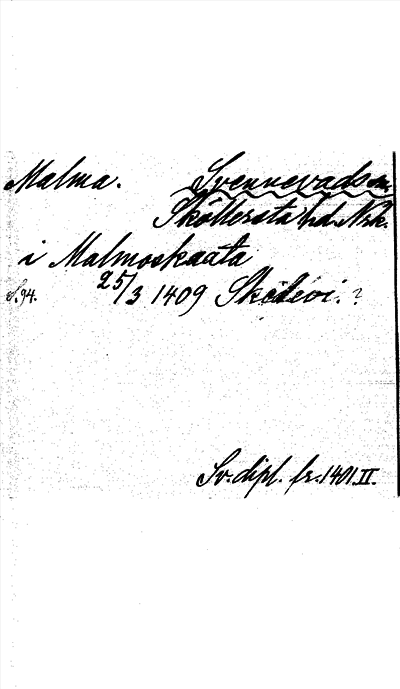 Malma. Svennevads sn.
Sköllersta hd. Nrk.
i Malmoskaata
S. 94. 25/3 1409 Skédevi. ?
Sv. dipl. fr. 1401. II.